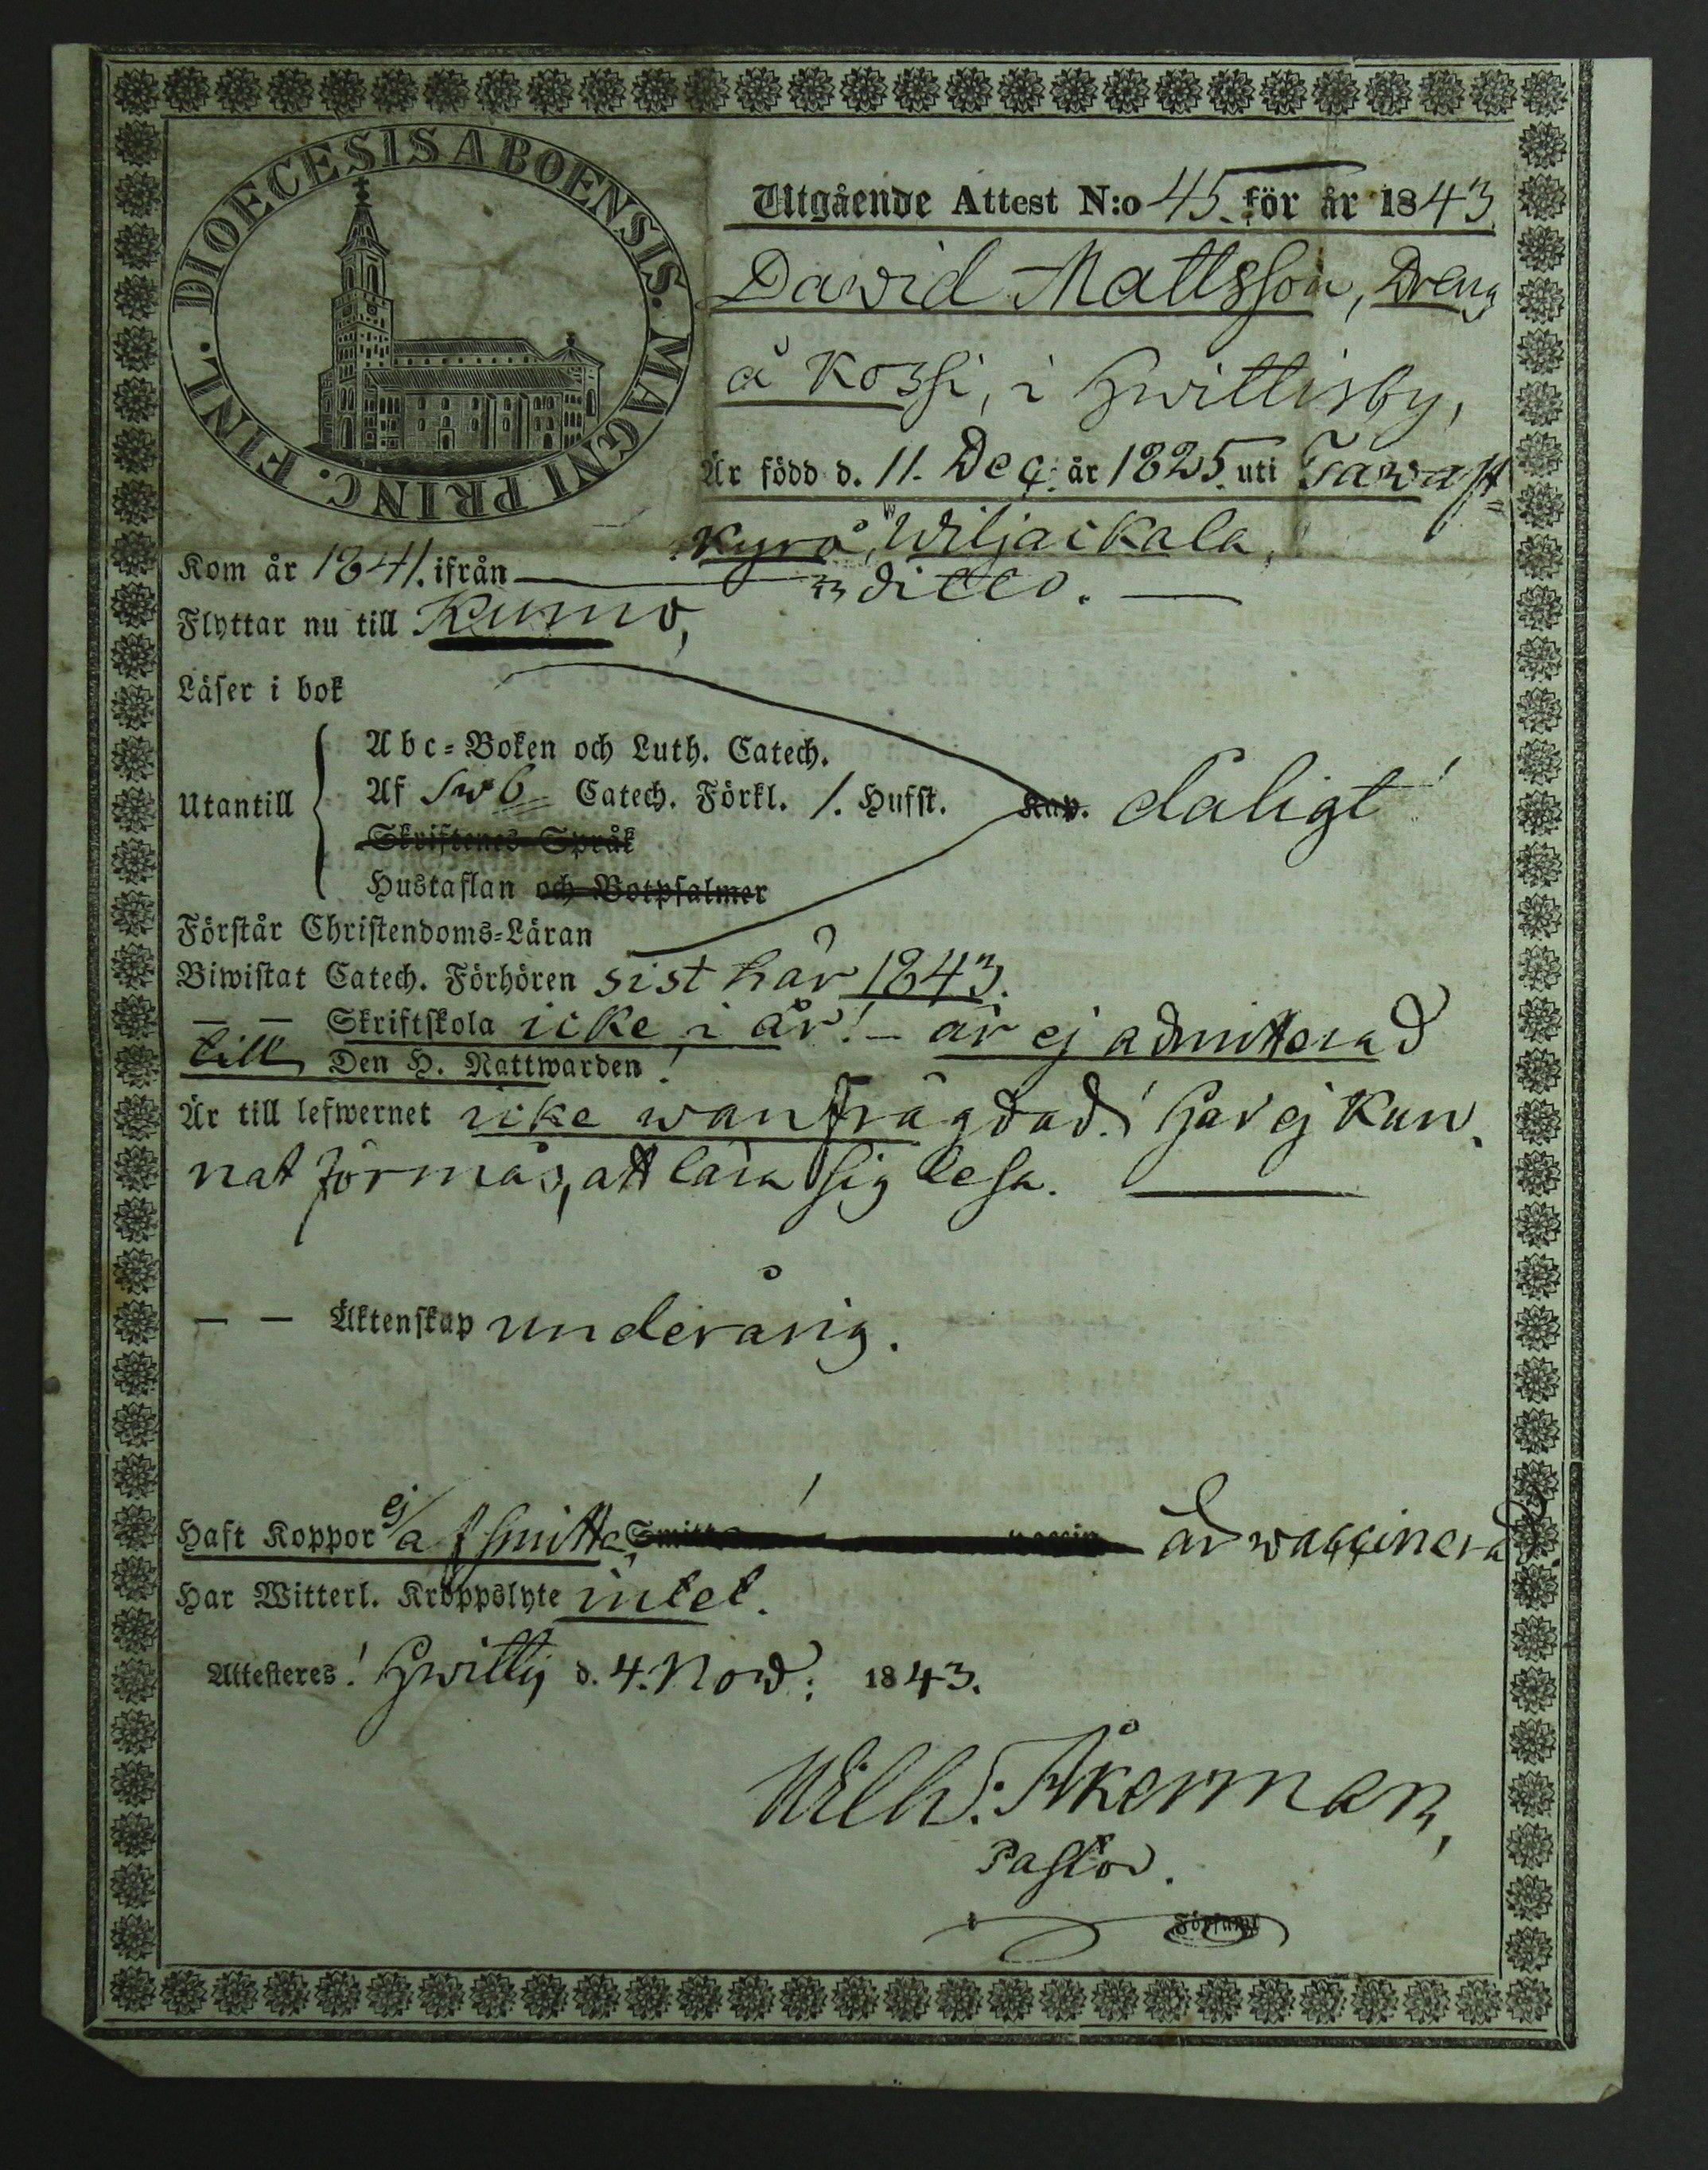 DIOECESIS ABOENSIS. MAGNI PRINC. FINL.
Utgående Attest N:o 45. för år 1843.
Dawid Mattsson, Dreng
å Kossi, i Hwittisby,
Är född d. 11. Dec. år 1825. uti Tawast=
Kyrö, Wiljackala,
Kom år 1841. ifrån — ditto. —
Flyttar nu till Kumo,
Läser i bok
Abc-Boken och Luth. Catech.
Utantill Af Sweb Catech. Förkl. 1. Hufst. Kap. dåligt!
Skriftenes Språk
Hustaflan och Botpsalmer
Förstår Christendoms-Läran
Biwistat Catech. Förhören sist här 1843.
— — Skriftskola icke i år! – är ej admitterad
till Den H. Nattwarden!
Är till lefwernet icke wanfrägdad! Har ej kun-
nat förmås, att lära sig lesa. —
— — Äktenskap underårig.
Haft Koppor ej af smitta, Smitta vaccin är waccinerad.
Har Witterl. Kroppslyte intet.
Attesteres! Hwittis d. 4. Nov: 1843.
Wilh: Åkerman,
Pastor.
Församl